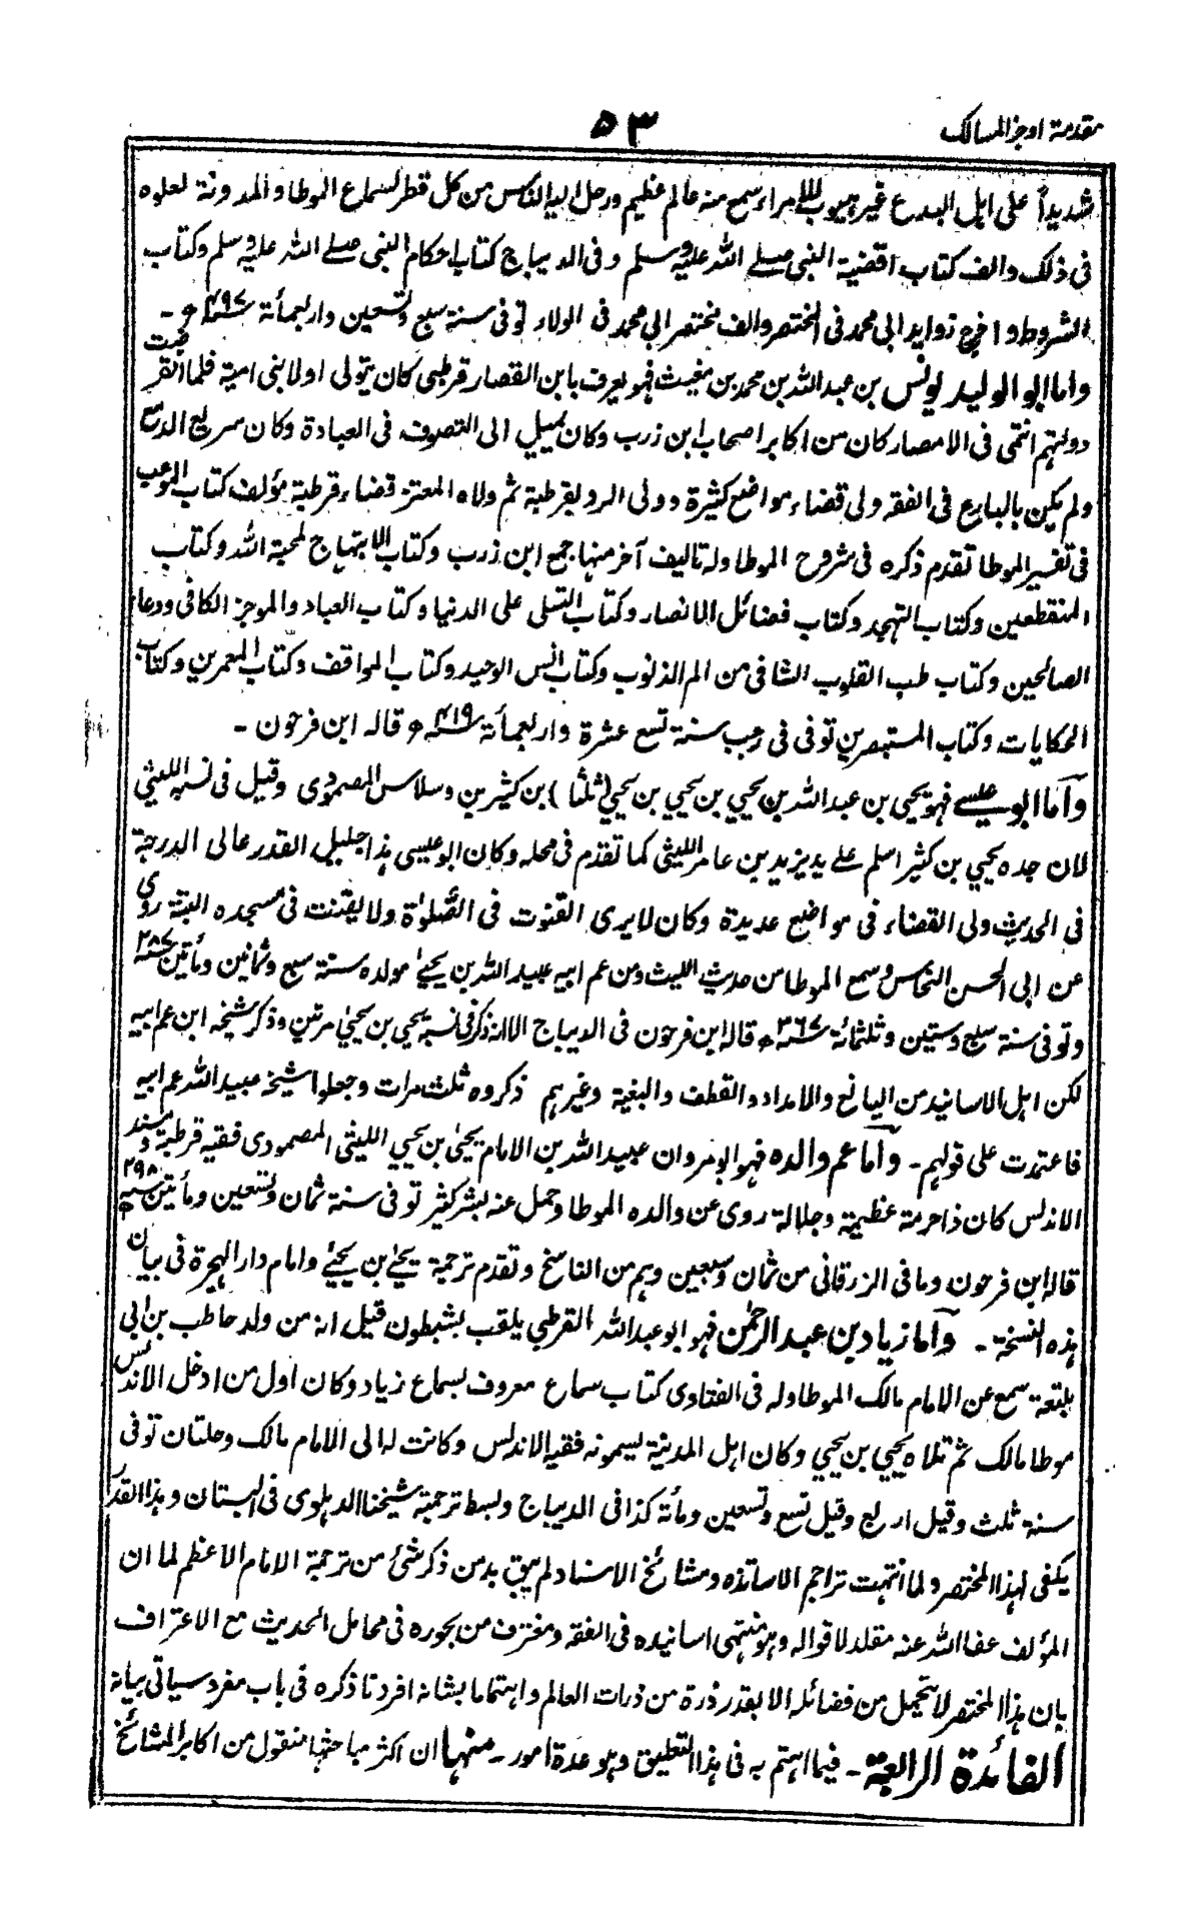 مقدمة اوجز المسالك
٥٣
شديداً على اهل البدع غير هيوب للامراء سمع منه عالم عظيم ورحل اليه الناس من كل قطر لسماع الموطا والمدونة لعلوه
فى ذلك والف كتاب اقضية النبى صلے الله عليه وسلم وفى الديباج كتاب احكام النبى صلے الله عليه وسلم وكتاب
الشروط واخرج زوايد ابى محمد فى المختصر والف مختصر ابى محمد فى الولاء توفى سنة سبع وتسعين واربعمأة سنه ٤٩٧ھ -
واما ابو الوليد يونس بن عبدالله بن محمد بن مغيث فهو يعرف بابن القصار قرطبى كان يتولى اولا بنى امية فلما انقرضت
دولتهم انتمى فى الامصار كان من اكابر اصحاب ابن زرب وكان يميل الى التصوف فى العبادة وكان سريع الدمع
ولم يكن بالبارع فى الفقه ولى قضاء مواضع كثيرة وولى الرد بقرطبة ثم ولاه المعتز قضاء قرطبة مؤلف كتاب الموعب
فى تفسير الموطا تقدم ذكره فى شروح الموطا وله تاليف آخر منها جمع ابن زرب وكتاب الابتهاج لمحبة الله وكتاب
المنقطعين وكتاب التهجد وكتاب فضائل الانصار وكتاب التسلى على الدنيا وكتاب العباد والموجز الكافى ودعاء
الصالحين وكتاب طب القلوب الشافى من الم الذنوب وكتاب انس الوحيد وكتاب المواقف وكتاب المعمرين وكتاب
الحكايات وكتاب المستبصرين توفى فى رجب سنة تسع عشرة واربعمأة سنه ٤١٩ھ قاله ابن فرحون -
واما ابو عيسے فهو يحيى بن عبدالله بن يحيي بن يحيي بن يحيي (ثلثا) بن كثير بن وسلاس المصمودى وقيل فى نسبه الليثي
لان جده يحيي بن كثير اسلم على يد يزيد بن عامر الليثى كما تقدم فى محله وكان ابو عيسى هذا جليل القدر عالى الدرجة
فى الحديث ولى القضاء فى مواضع عديدة وكان لا يرى القنوت فى الصلوٰة ولا يقنت فى مسجده البتة روى
عن ابى الحسن النحاس وسمع الموطا من حديث الليث ومن عم ابيه عبيد الله بن يحيےٰ مولده سنة سبع وثمانين ومأتين سنه ٢٨٧ھ
وتوفى سنة سبع وستين وثلثمائة سنه ٣٦٧ھ قاله ابن فرحون فى الديباج الا انه ذكر فى نسبه يحيى بن يحيىٰ مرتين وذكر شيخه ابن عم ابيه
لكن اهل الاسانيد من اليانع والامداد والقطف والبغية وغيرهم ذكروه ثلث مرات وجعلوا شيخه عبيد الله عم ابيه
فاعتمدت على قولهم - واما عم والده فهو ابو مروان عبيد الله بن الامام يحيىٰ بن يحيي الليثى المصمودى فقيه قرطبة ومسند
الاندلس كان ذا حرمة عظيمة وجلالة روى عن والده الموطا وحمل عنه بشر كثير توفى سنة ثمان وتسعين ومأتين سنه ٢٩٨ھ
قاله ابن فرحون وما فى الزرقانى من ثمان وسبعين وهم من الناسخ وتقدم ترجمة يحيےٰ بن يحيےٰ وامام دار الهجرة فى بيان
هذه النسخة - واما زياد بن عبد الرحمٰن فهو ابو عبد الله القرطبى يلقب بشبطون قيل انه من ولد حاطب بن ابى
بلتعة سمع عن الامام مالك الموطا وله فى الفتاوى كتاب سماع معروف بسماع زياد وكان اول من ادخل الاندلس
موطا مالك ثم تلاه يحيي بن يحيي وكان اهل المدينة يسمونه فقيه الاندلس وكانت له الى الامام مالك رحلتان توفى
سنة ثلث وقيل اربع وقيل تسع وتسعين ومأة كذا فى الديباج وبسط ترجمة شيخنا الدهلوى فى البستان وهذا القدر
يكفى لهذا المختصر ولما انتهت تراجم الاساتذه ومشائخ الاسناد لم يبق بد من ذكر شئ من ترجمة الامام الاعظم لما ان
المؤلف عفا الله عنه مقلد لاقواله وهو منتهى اسانيده فى الفقه ومغترف من بحوره فى محامل الحديث مع الاعتراف
بان هذا المختصر لا يتحمل من فضائله الا بقدر ذرة من ذرات العالم واهتماما بشانه افردنا ذكره فى باب مفرد سياتى بيانه
الفائدة الرابعة - فيما اهتم به فى هذا التعليق وهو عدة امور - منها ان اكثر مباحثها منقول من اكابر المشائخ